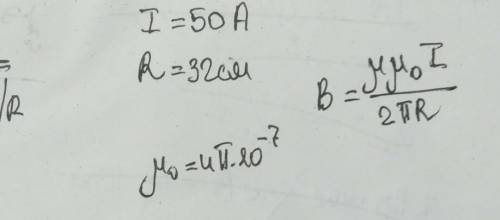 I = 50 A
R = 32 см
=
/R
B = μμ₀I / 2πR
μ₀ = 4π·10⁻⁷